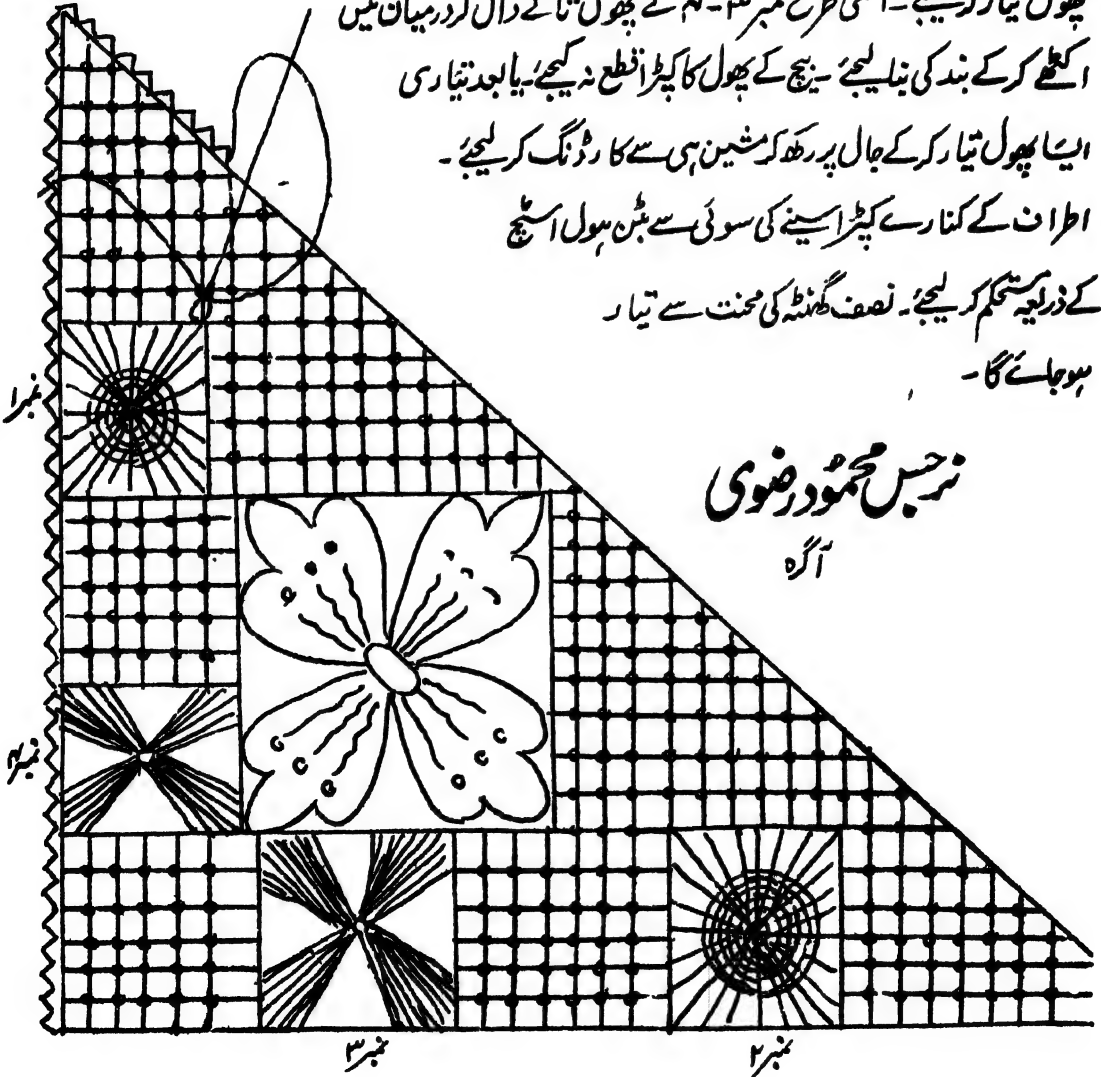 پھول تیار کرلیجئے۔ اسی طرح نمبر ۳۔ ۴ کے پھول تاگے ڈال کر درمیان میں
اکٹھے کرکے بندکی بنالیجئے۔ بیچ کے پھول کا کپڑا قطع نہ کیجئے۔ یا بعد تیاری
ایسا پھول تیار کرکے جال پر رکھ کر مشین ہی سے کارڈنگ کرلیجئے۔
اطراف کے کنارے کپڑا سینے کی سوئی سے بٹن ہول اسٹیچ
کے ذریعہ مستحکم کرلیجئے۔ نصف گھنٹہ کی محنت سے تیار
ہوجائے گا۔
نرجس محمود رضوی
آگرہ
نمبر۱
نمبر۴
نمبر۳
نمبر۲